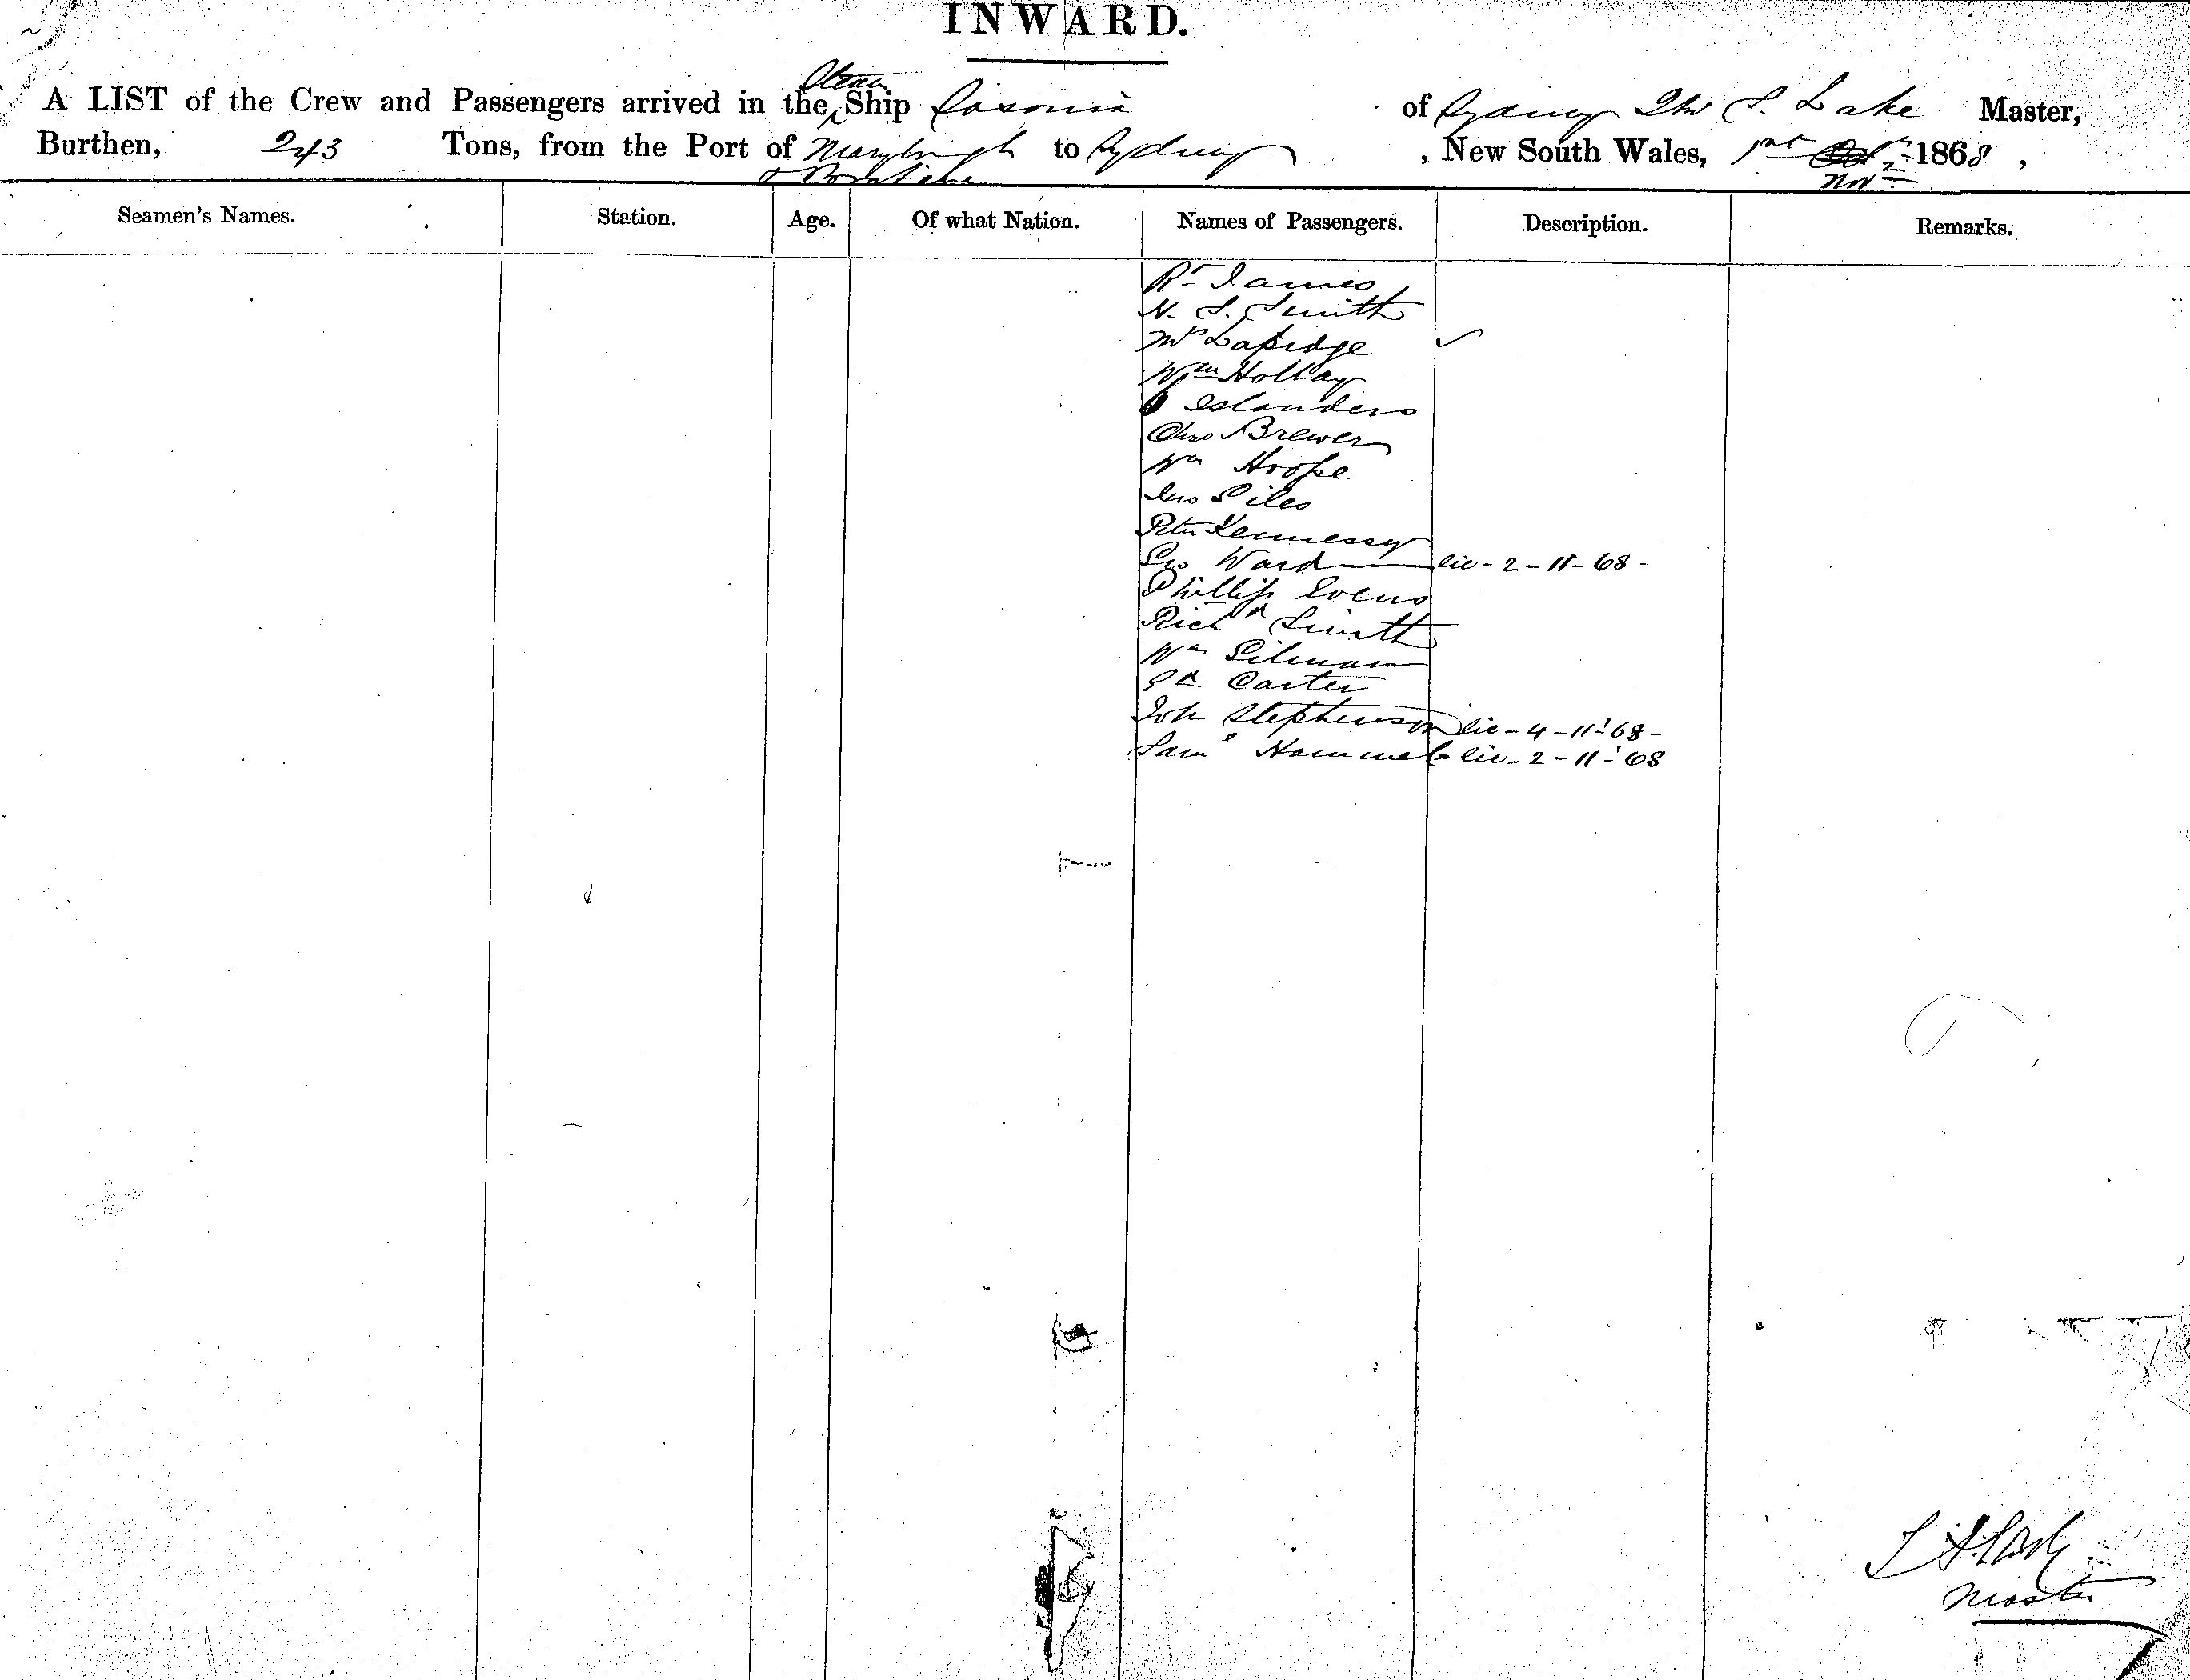 INWARD.
Steam
A LIST of the Crew and Passengers arrived in the Ship of Sydney Thos S. Lake Master,
Burthen, 243 Tons, from the Port of Marybrough to Sydney , New South Wales, 1st 1868 ,
Nov
Seamen's Names. Station. Age. Of what Nation. Names of Passengers. Description. Remarks.
Rt James
N. S. Smith
Lapidge
Wm Hollay
Islanders
Chas Brewer
Wm Hoope
Piles
Peter Kennessy
Geo Ward lic - 2 - 11 - 68 -
Phillip Evens
Richd Smith
Wm Silmam
Ed Carter
John Stephenson lic - 4 - 11 - '68 -
Saml lic - 2 - 11 - '68
Master